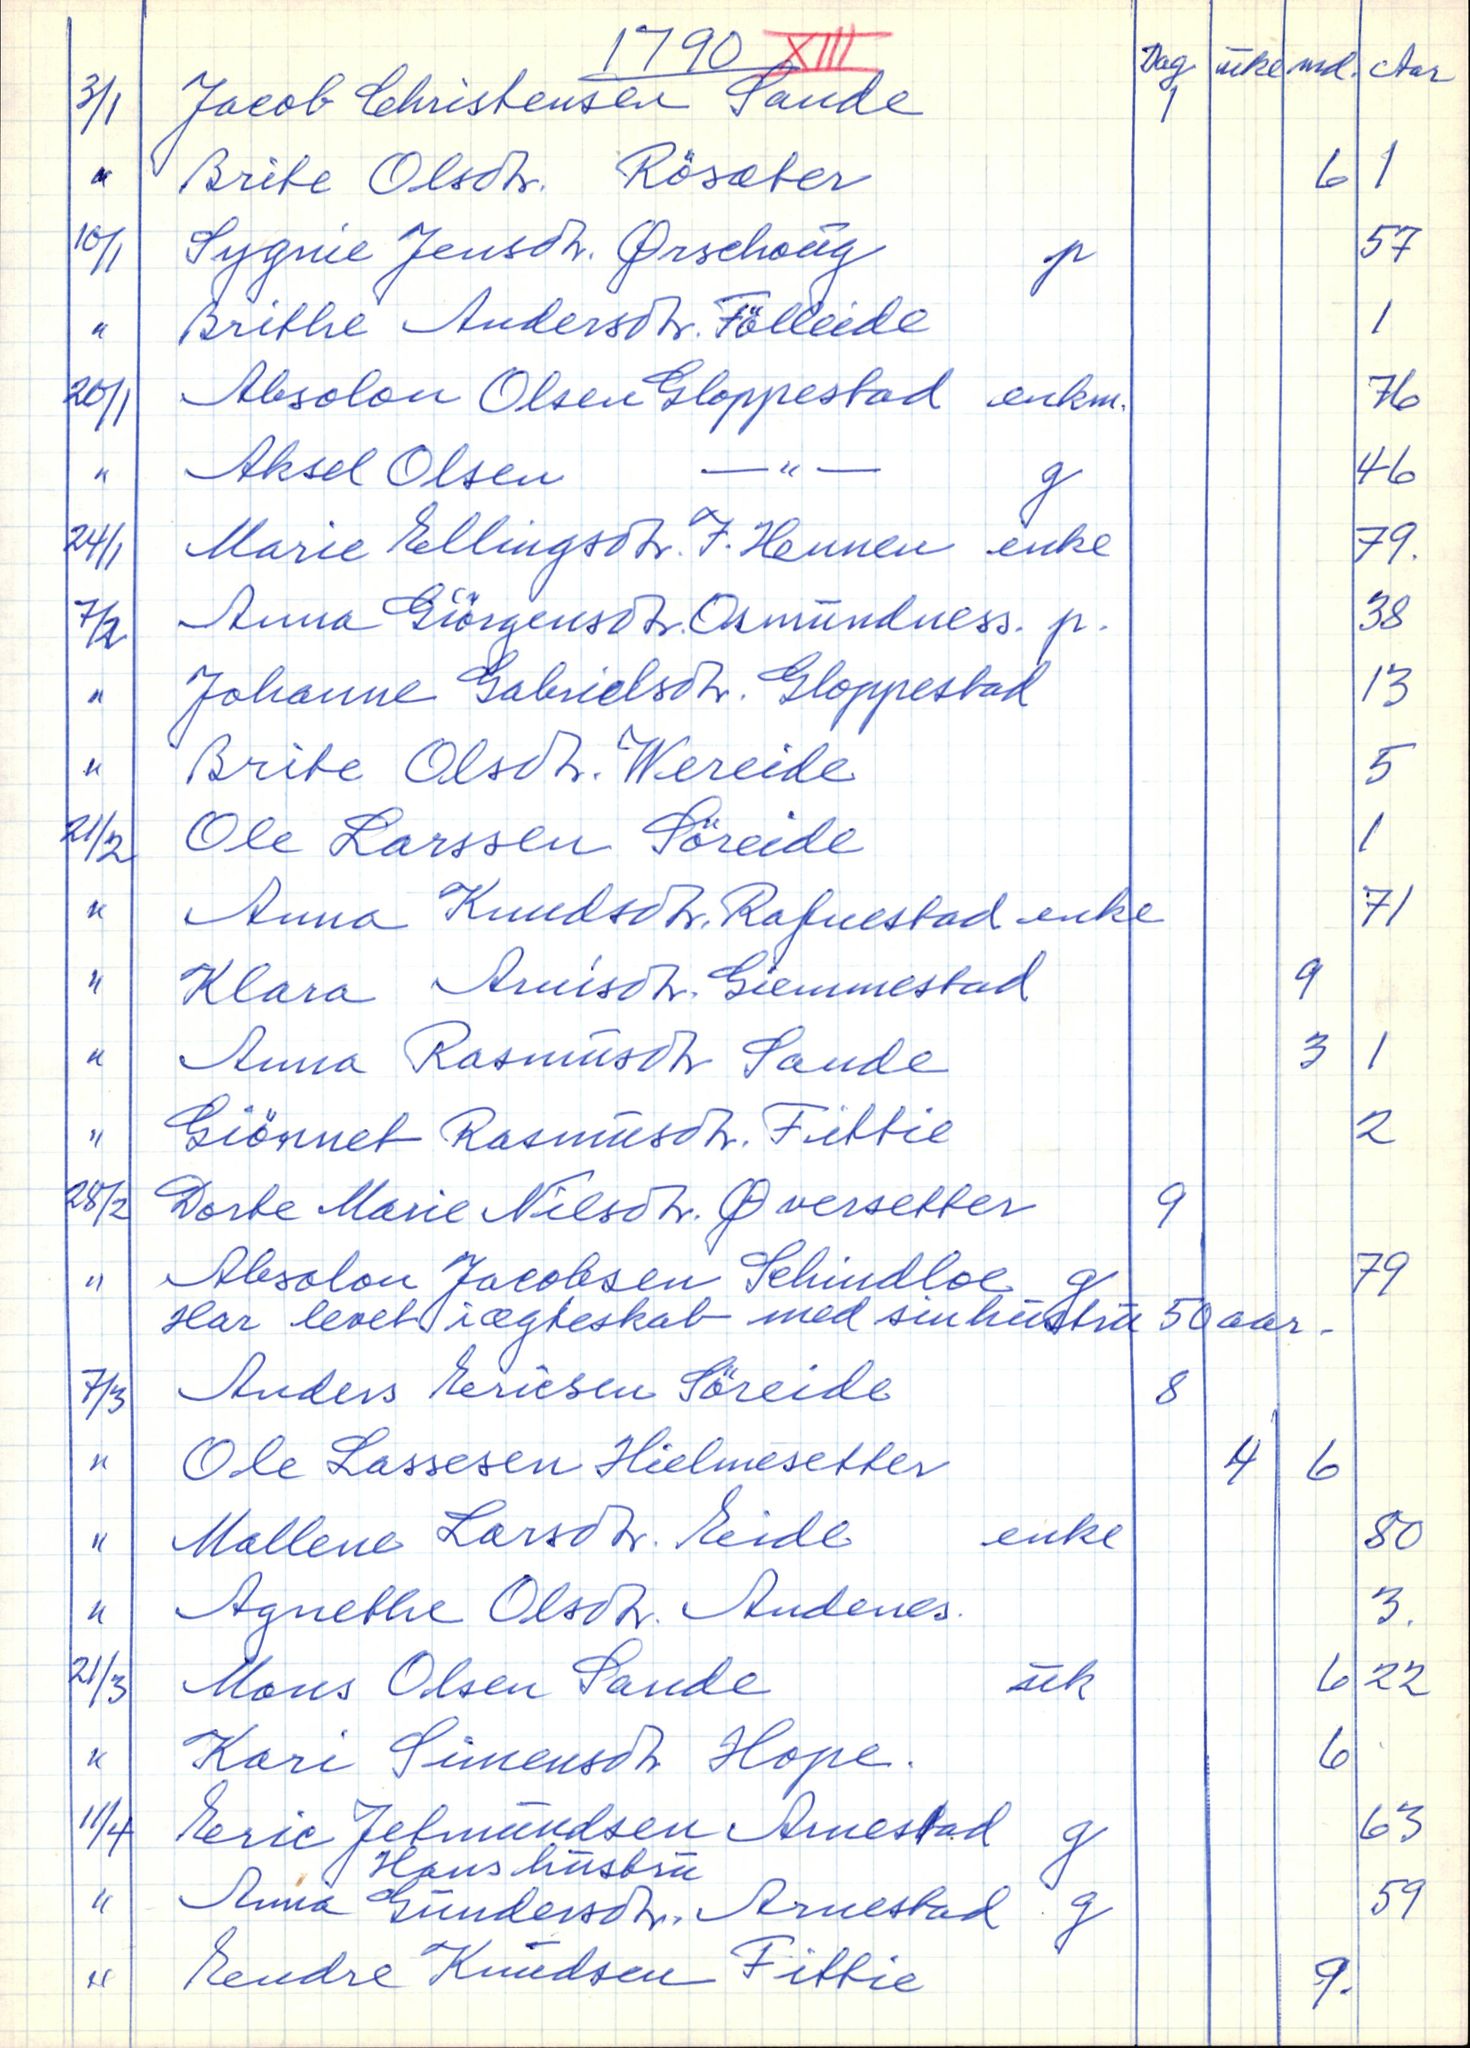 1790 XIII
Dag uke md. Aar
3/1 Jacob Christensen Sande 1
" Brite Olsdtr. Rösæter 6 1
10/1 Sygnie Jensdtr. Ørschoug p 57
" Brithe Andersdtr. Fölleide 1
20/1 Absolon Olsen Gloppestad enkm. 76
" Aksel Olsen —"— g 46
24/1 Marie Ellingsdtr. Y. Hennen enke 79.
7/2 Anna Giörgensdtr. Osmundness. p. 38
" Johanne Gabrielsdtr. Gloppestad 13
" Brite Olsdtr. Wereide 5
21/2 Ole Larssen Söreide 1
" Anna Knudsdtr. Rafnestad enke 71
" Klara Arnisdtr. Giemmestad 9
" Anna Rasmusdtr Sande 3 1
" Giönnet Rasmusdtr. Fittie 2
28/2 Dorte Marie Nilsdtr. Øversetter 9
" Absolon Jacobsen Schindloe g 79
Har levet i ægteskab med sin hustru 50 aar.
7/3 Anders Ericsen Söreide 8
" Ole Lassesen Hielmesetter 4 6
" Mallene Larsdtr. Eide enke 80
" Agnethe Olsdtr. Andenes. 3.
21/3 Mons Olsen Sande uk 6 22
" Kari Simensdtr Hope. 6
11/4 Eric Jetmundsen Arnestad g 63
Hans hustru
" Anna Gundersdtr. Arnestad g 59
" Eendre Knudsen Fittie 9.